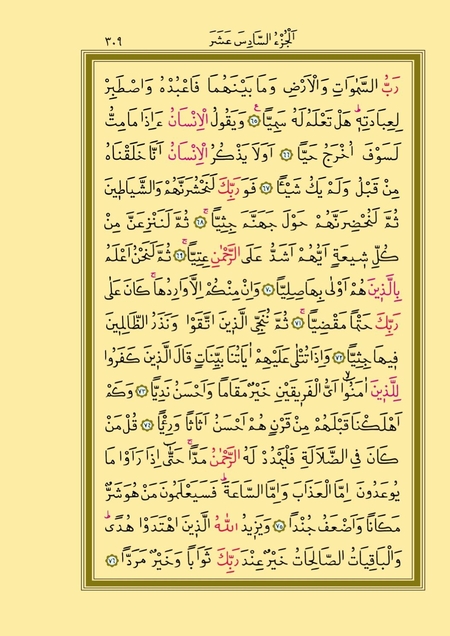 اَلْجُزْءُ السَّادِسَ عَشَرَ ٣٠٩
رَبُّ السَّمٰوَاتِ وَالْاَرْضِ وَمَا بَيْنَهُمَا فَاعْبُدْهُ وَاصْطَبِرْ
لِعِبَادَتِهِۜ هَلْ تَعْلَمُ لَهُ سَمِيًّا۟ ﴿٦٥﴾ وَيَقُولُ الْاِنْسَانُ ءَاِذَا مَا مِتُّ
لَسَوْفَ اُخْرَجُ حَيًّا ﴿٦٦﴾ اَوَلَا يَذْكُرُ الْاِنْسَانُ اَنَّا خَلَقْنَاهُ
مِنْ قَبْلُ وَلَمْ يَكُ شَيْـًٔا ﴿٦٧﴾ فَوَ رَبِّكَ لَنَحْشُرَنَّهُمْ وَالشَّيَاطِينَ
ثُمَّ لَنُحْضِرَنَّهُمْ حَوْلَ جَهَنَّمَ جِثِيًّاۚ ﴿٦٨﴾ ثُمَّ لَنَنْزِعَنَّ مِنْ
كُلِّ شِيعَةٍ اَيُّهُمْ اَشَدُّ عَلَى الرَّحْمٰنِ عِتِيًّاۚ ﴿٦٩﴾ ثُمَّ لَنَحْنُ اَعْلَمُ
بِالَّذِينَ هُمْ اَوْلٰى بِهَا صِلِيًّا ﴿٧٠﴾ وَاِنْ مِنْكُمْ اِلَّا وَارِدُهَاۚ كَانَ عَلٰى
رَبِّكَ حَتْمًا مَقْضِيًّاۚ ﴿٧١﴾ ثُمَّ نُنَجِّى الَّذِينَ اتَّقَوْا وَنَذَرُ الظَّالِمِينَ
فِيهَا جِثِيًّا ﴿٧٢﴾ وَاِذَا تُتْلٰى عَلَيْهِمْ اٰيَاتُنَا بَيِّنَاتٍ قَالَ الَّذِينَ كَفَرُوا
لِلَّذِينَ اٰمَنُٓواۙ اَىُّ الْفَرِيقَيْنِ خَيْرٌ مَقَامًا وَاَحْسَنُ نَدِيًّا ﴿٧٣﴾ وَكَمْ
اَهْلَكْنَا قَبْلَهُمْ مِنْ قَرْنٍ هُمْ اَحْسَنُ اَثَاثًا وَرِءْيًا ﴿٧٤﴾ قُلْ مَنْ
كَانَ فِى الضَّلَالَةِ فَلْيَمْدُدْ لَهُ الرَّحْمٰنُ مَدًّاۚ حَتّٰٓى اِذَا رَاَوْا مَا
يُوعَدُونَ اِمَّا الْعَذَابَ وَاِمَّا السَّاعَةَۜ فَسَيَعْلَمُونَ مَنْ هُوَ شَرٌّ
مَكَانًا وَاَضْعَفُ جُنْدًا ﴿٧٥﴾ وَيَزِيدُ اللّٰهُ الَّذِينَ اهْتَدَوْا هُدًىۜ
وَالْبَاقِيَاتُ الصَّالِحَاتُ خَيْرٌ عِنْدَ رَبِّكَ ثَوَابًا وَخَيْرٌ مَرَدًّا ﴿٧٦﴾